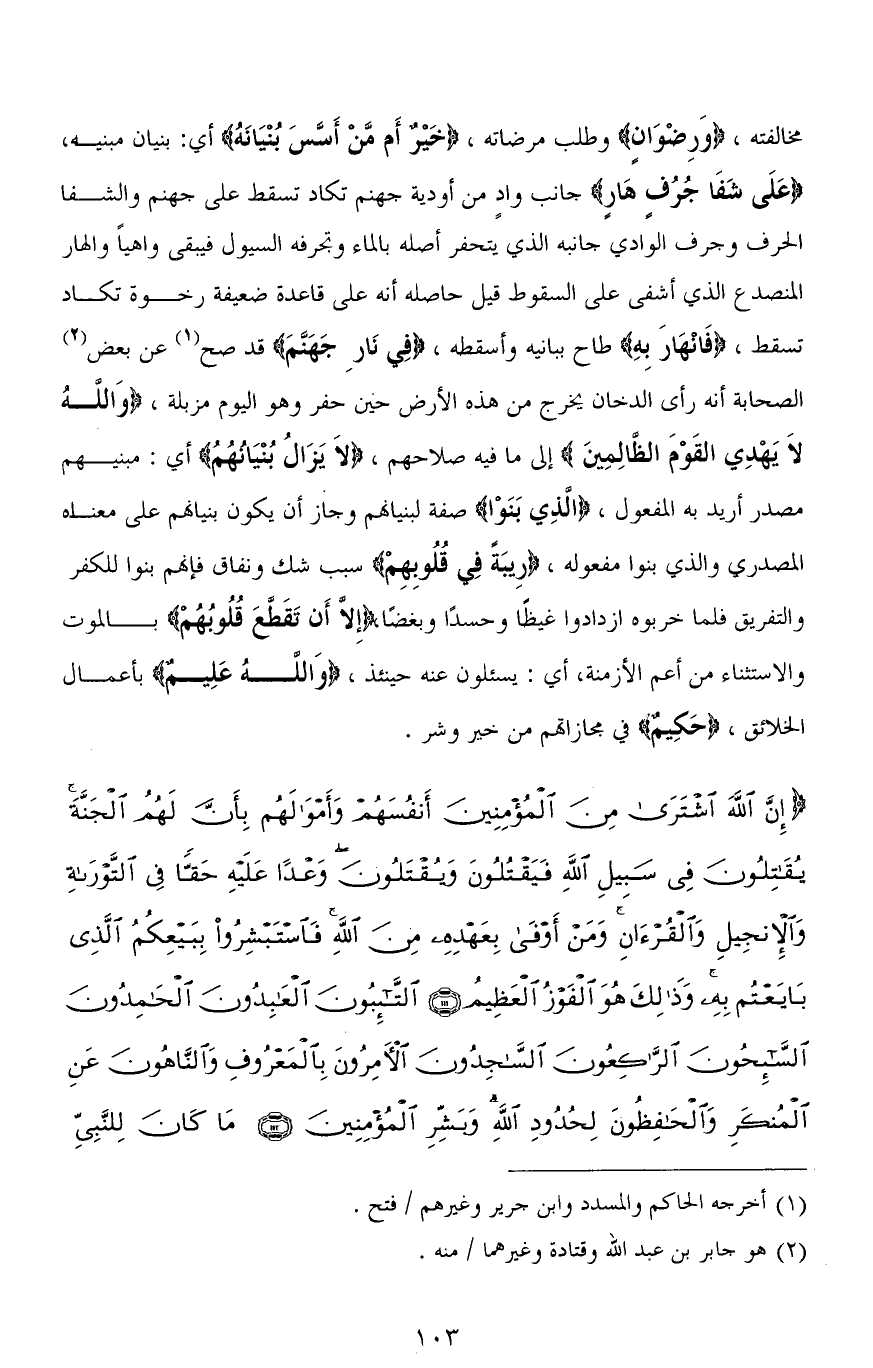 مخالفته ، ﴿وَرِضْوَانٍ﴾ وطلب مرضاته ، ﴿خَيْرٌ أَم مَّنْ أَسَّسَ بُنْيَانَهُ﴾ أي: بنيان مبنيـــه،
﴿عَلَى شَفَا جُرُفٍ هَارٍ﴾ جانب وادٍ من أودية جهنم تكاد تسقط على جهنم والشـــفا
الحرف وجرف الوادي جانبه الذي يتحفر أصله بالماء وتجرفه السيول فيبقى واهياً والهار
المنصدع الذي أشفى على السقوط قيل حاصله أنه على قاعدة ضعيفة رخـــوة تكـــاد
تسقط ، ﴿فَانْهَارَ بِهِ﴾ طاح ببانيه وأسقطه ، ﴿فِي نَارِ جَهَنَّمَ﴾ قد صح(١) عن بعض(٢)
الصحابة أنه رأى الدخان يخرج من هذه الأرض حين حفر وهو اليوم مزبلة ، ﴿وَاللَّـــهُ
لاَ يَهْدِي القَوْمَ الظَّالِمِينَ ﴾ إلى ما فيه صلاحهم ، ﴿لاَ يَزَالُ بُنْيَانُهُمُ﴾ أي : مبنيـــهم
مصدر أريد به المفعول ، ﴿الَّذِي بَنَوْا﴾ صفة لبنيانهم وجاز أن يكون بنيانهم على معنـاه
المصدري والذي بنوا مفعوله ، ﴿رِيبَةً فِي قُلُوبِهِمْ﴾ سبب شك ونفاق فإنهم بنوا للكفر
والتفريق فلما خربوه ازدادوا غيظًا وحسدًا وبغضًا،﴿إِلاَّ أَن تَقَطَّعَ قُلُوبُهُمْ﴾ بـــــالموت
والاستثناء من أعم الأزمنة، أي : يسئلون عنه حينئذ ، ﴿وَاللَّـــــهُ عَلِيـــمٌ﴾ بأعمـــال
الخلائق ، ﴿حَكِيمٌ﴾ في مجازاتهم من خير وشر .
﴿ إِنَّ ٱللَّهَ ٱشْتَرَىٰ مِنَ ٱلْمُؤْمِنِينَ أَنفُسَهُمْ وَأَمْوَٰلَهُم بِأَنَّ لَهُمُ ٱلْجَنَّةَۚ
يُقَٰتِلُونَ فِى سَبِيلِ ٱللَّهِ فَيَقْتُلُونَ وَيُقْتَلُونَۖ وَعْدًا عَلَيْهِ حَقًّا فِى ٱلتَّوْرَىٰةِ
وَٱلْإِنجِيلِ وَٱلْقُرْءَانِۚ وَمَنْ أَوْفَىٰ بِعَهْدِهِۦ مِنَ ٱللَّهِۚ فَٱسْتَبْشِرُوا۟ بِبَيْعِكُمُ ٱلَّذِى
بَايَعْتُم بِهِۦۚ وَذَٰلِكَ هُوَ ٱلْفَوْزُ ٱلْعَظِيمُ ١١١ ٱلتَّٰٓئِبُونَ ٱلْعَٰبِدُونَ ٱلْحَٰمِدُونَ
ٱلسَّٰٓئِحُونَ ٱلرَّٰكِعُونَ ٱلسَّٰجِدُونَ ٱلْأَمِرُونَ بِٱلْمَعْرُوفِ وَٱلنَّاهُونَ عَنِ
ٱلْمُنكَرِ وَٱلْحَٰفِظُونَ لِحُدُودِ ٱللَّهِۗ وَبَشِّرِ ٱلْمُؤْمِنِينَ ١١٢ مَا كَانَ لِلنَّبِىِّ
(١) أخرجه الحاكم والمسدد وابن جرير وغيرهم / فتح .
(٢) هو جابر بن عبد الله وقتادة وغيرهما / منه .
١٠٣